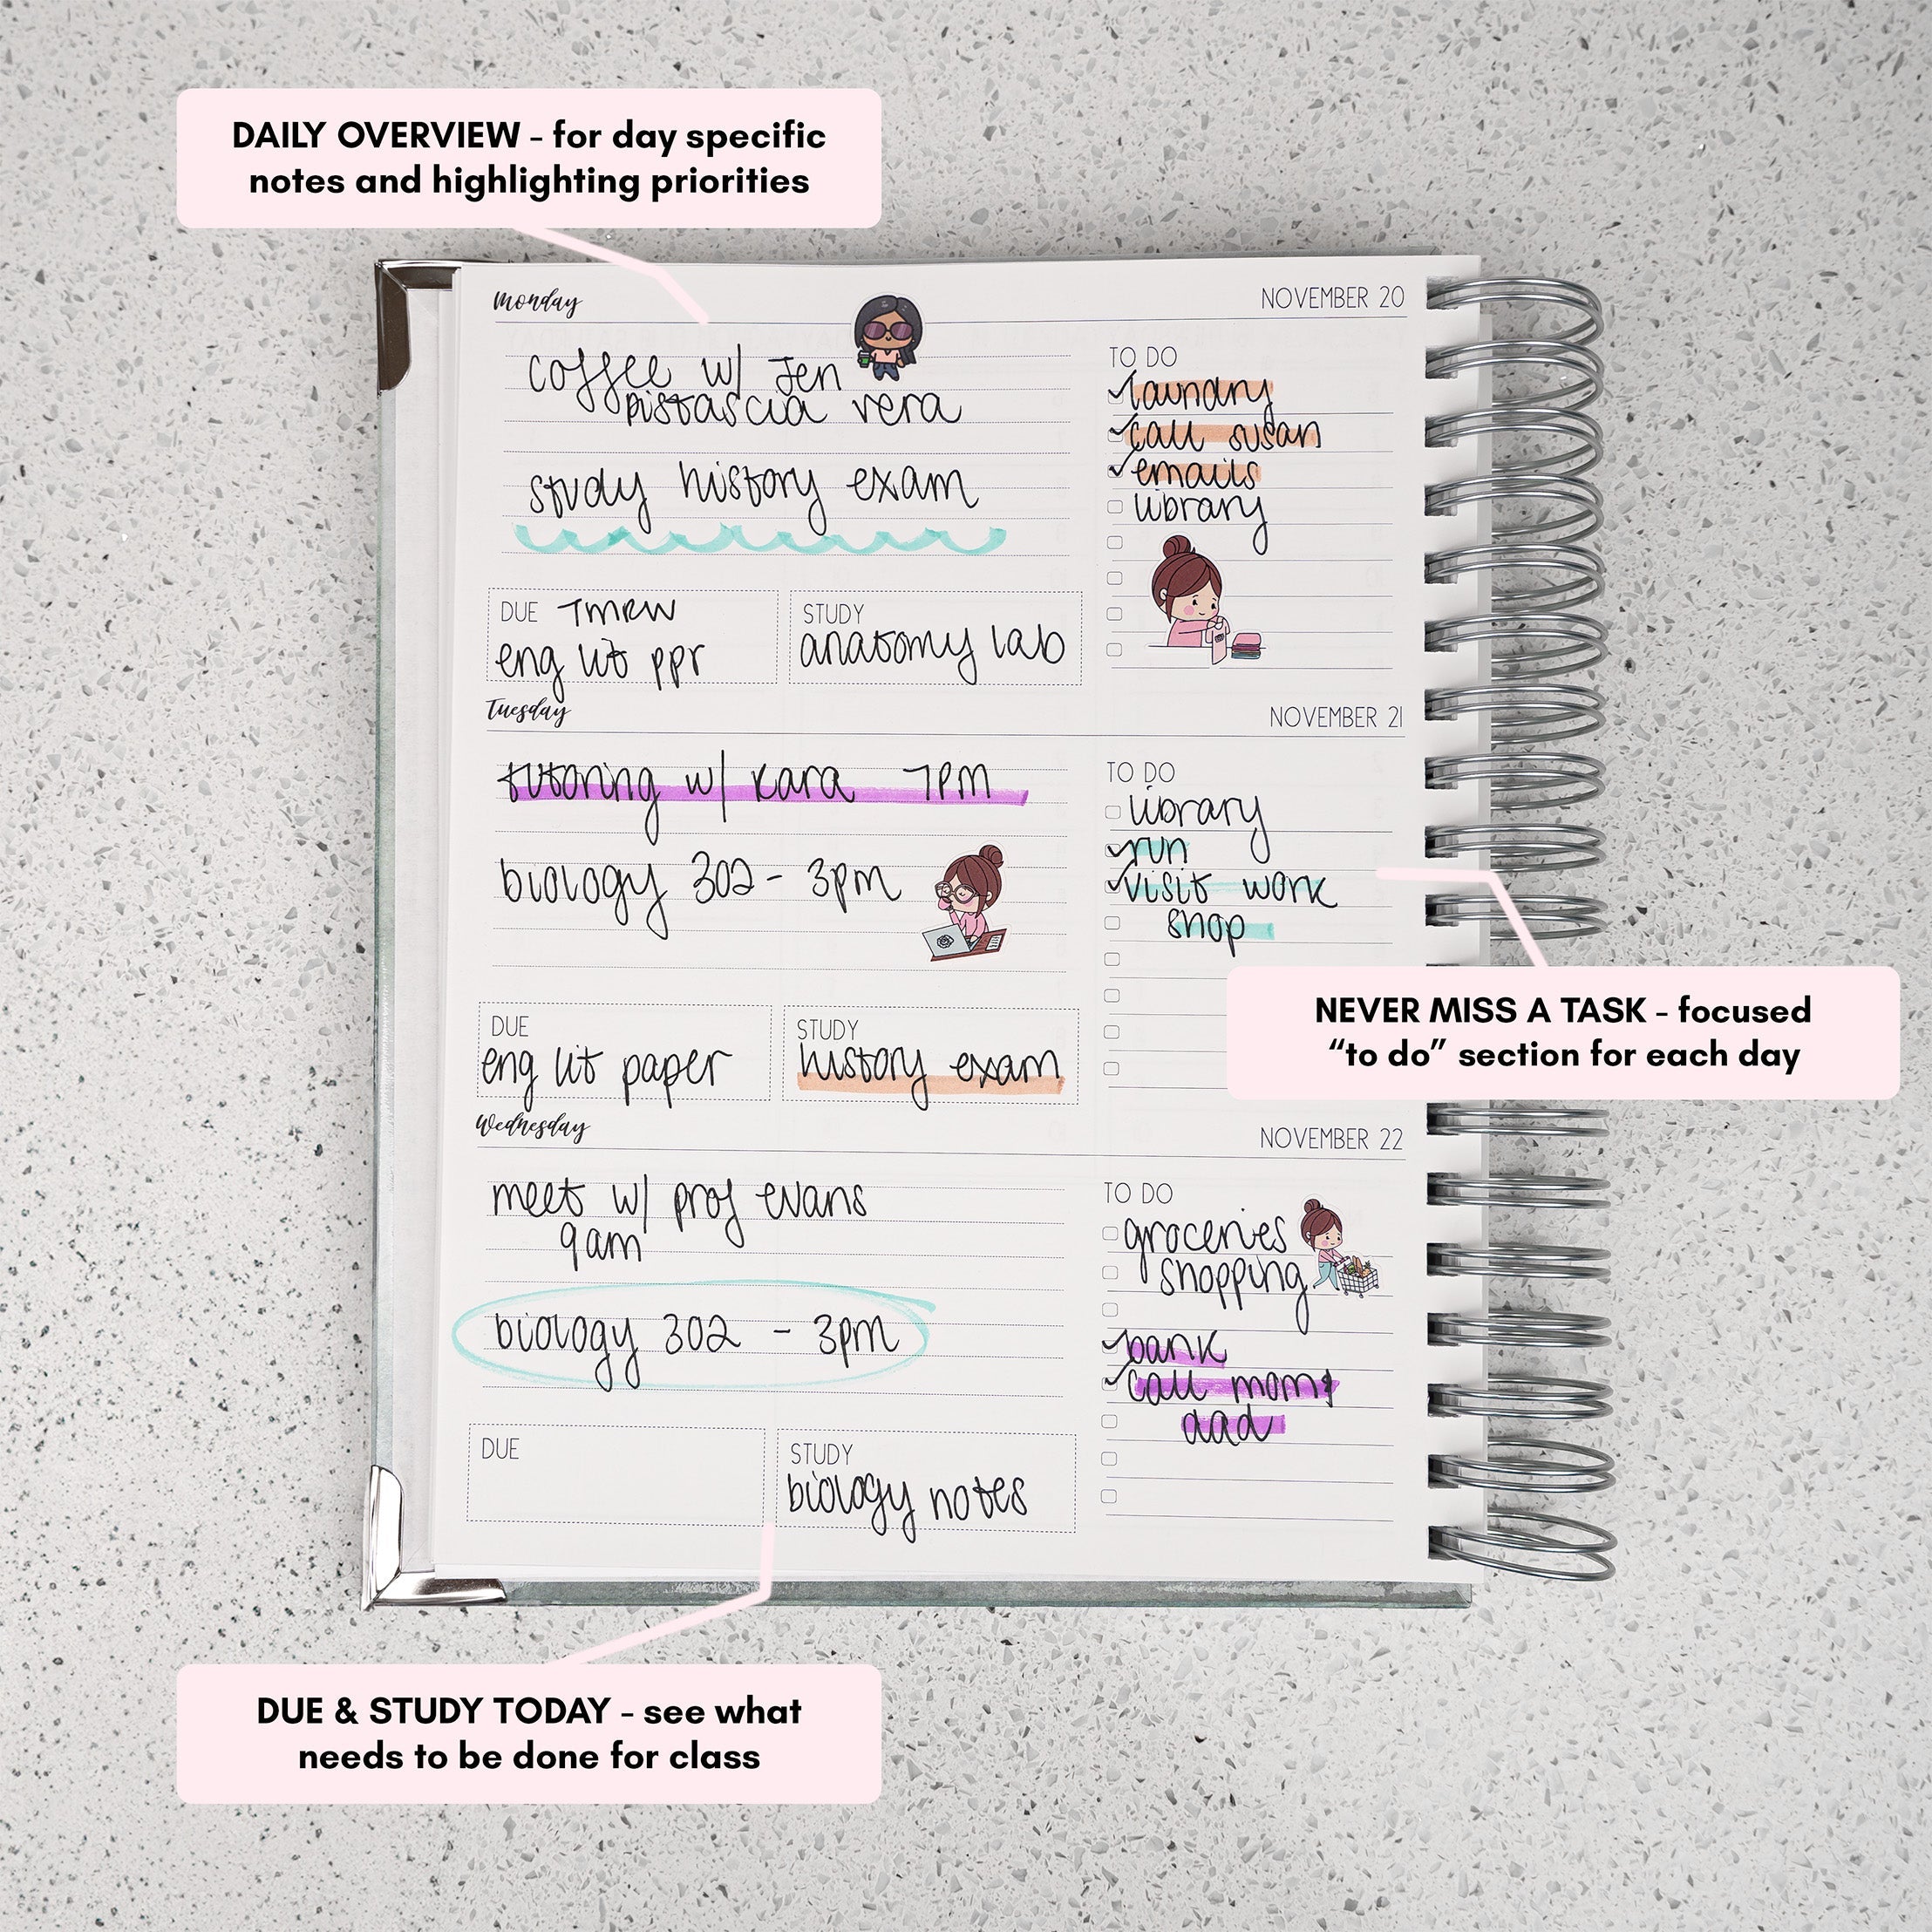 DAILY OVERVIEW - for day specific
notes and highlighting priorities
Monday
NOVEMBER 20
coffee w/ Jen
pistascia vera
study history exam
TO DO
laundry
call susan
emails
library
DUE TMRW
eng lit ppr
STUDY
anatomy lab
Tuesday
NOVEMBER 21
tutoring w/ kara 7PM
biology 302 - 3pm
TO DO
library
run
visit work
shop
DUE
eng lit paper
STUDY
history exam
NEVER MISS A TASK - focused
“to do” section for each day
Wednesday
NOVEMBER 22
meet w/ prof evans
9am
biology 302 - 3pm
TO DO
groceries
shopping
bank
call mom &
dad
DUE
STUDY
biology notes
DUE & STUDY TODAY - see what
needs to be done for class